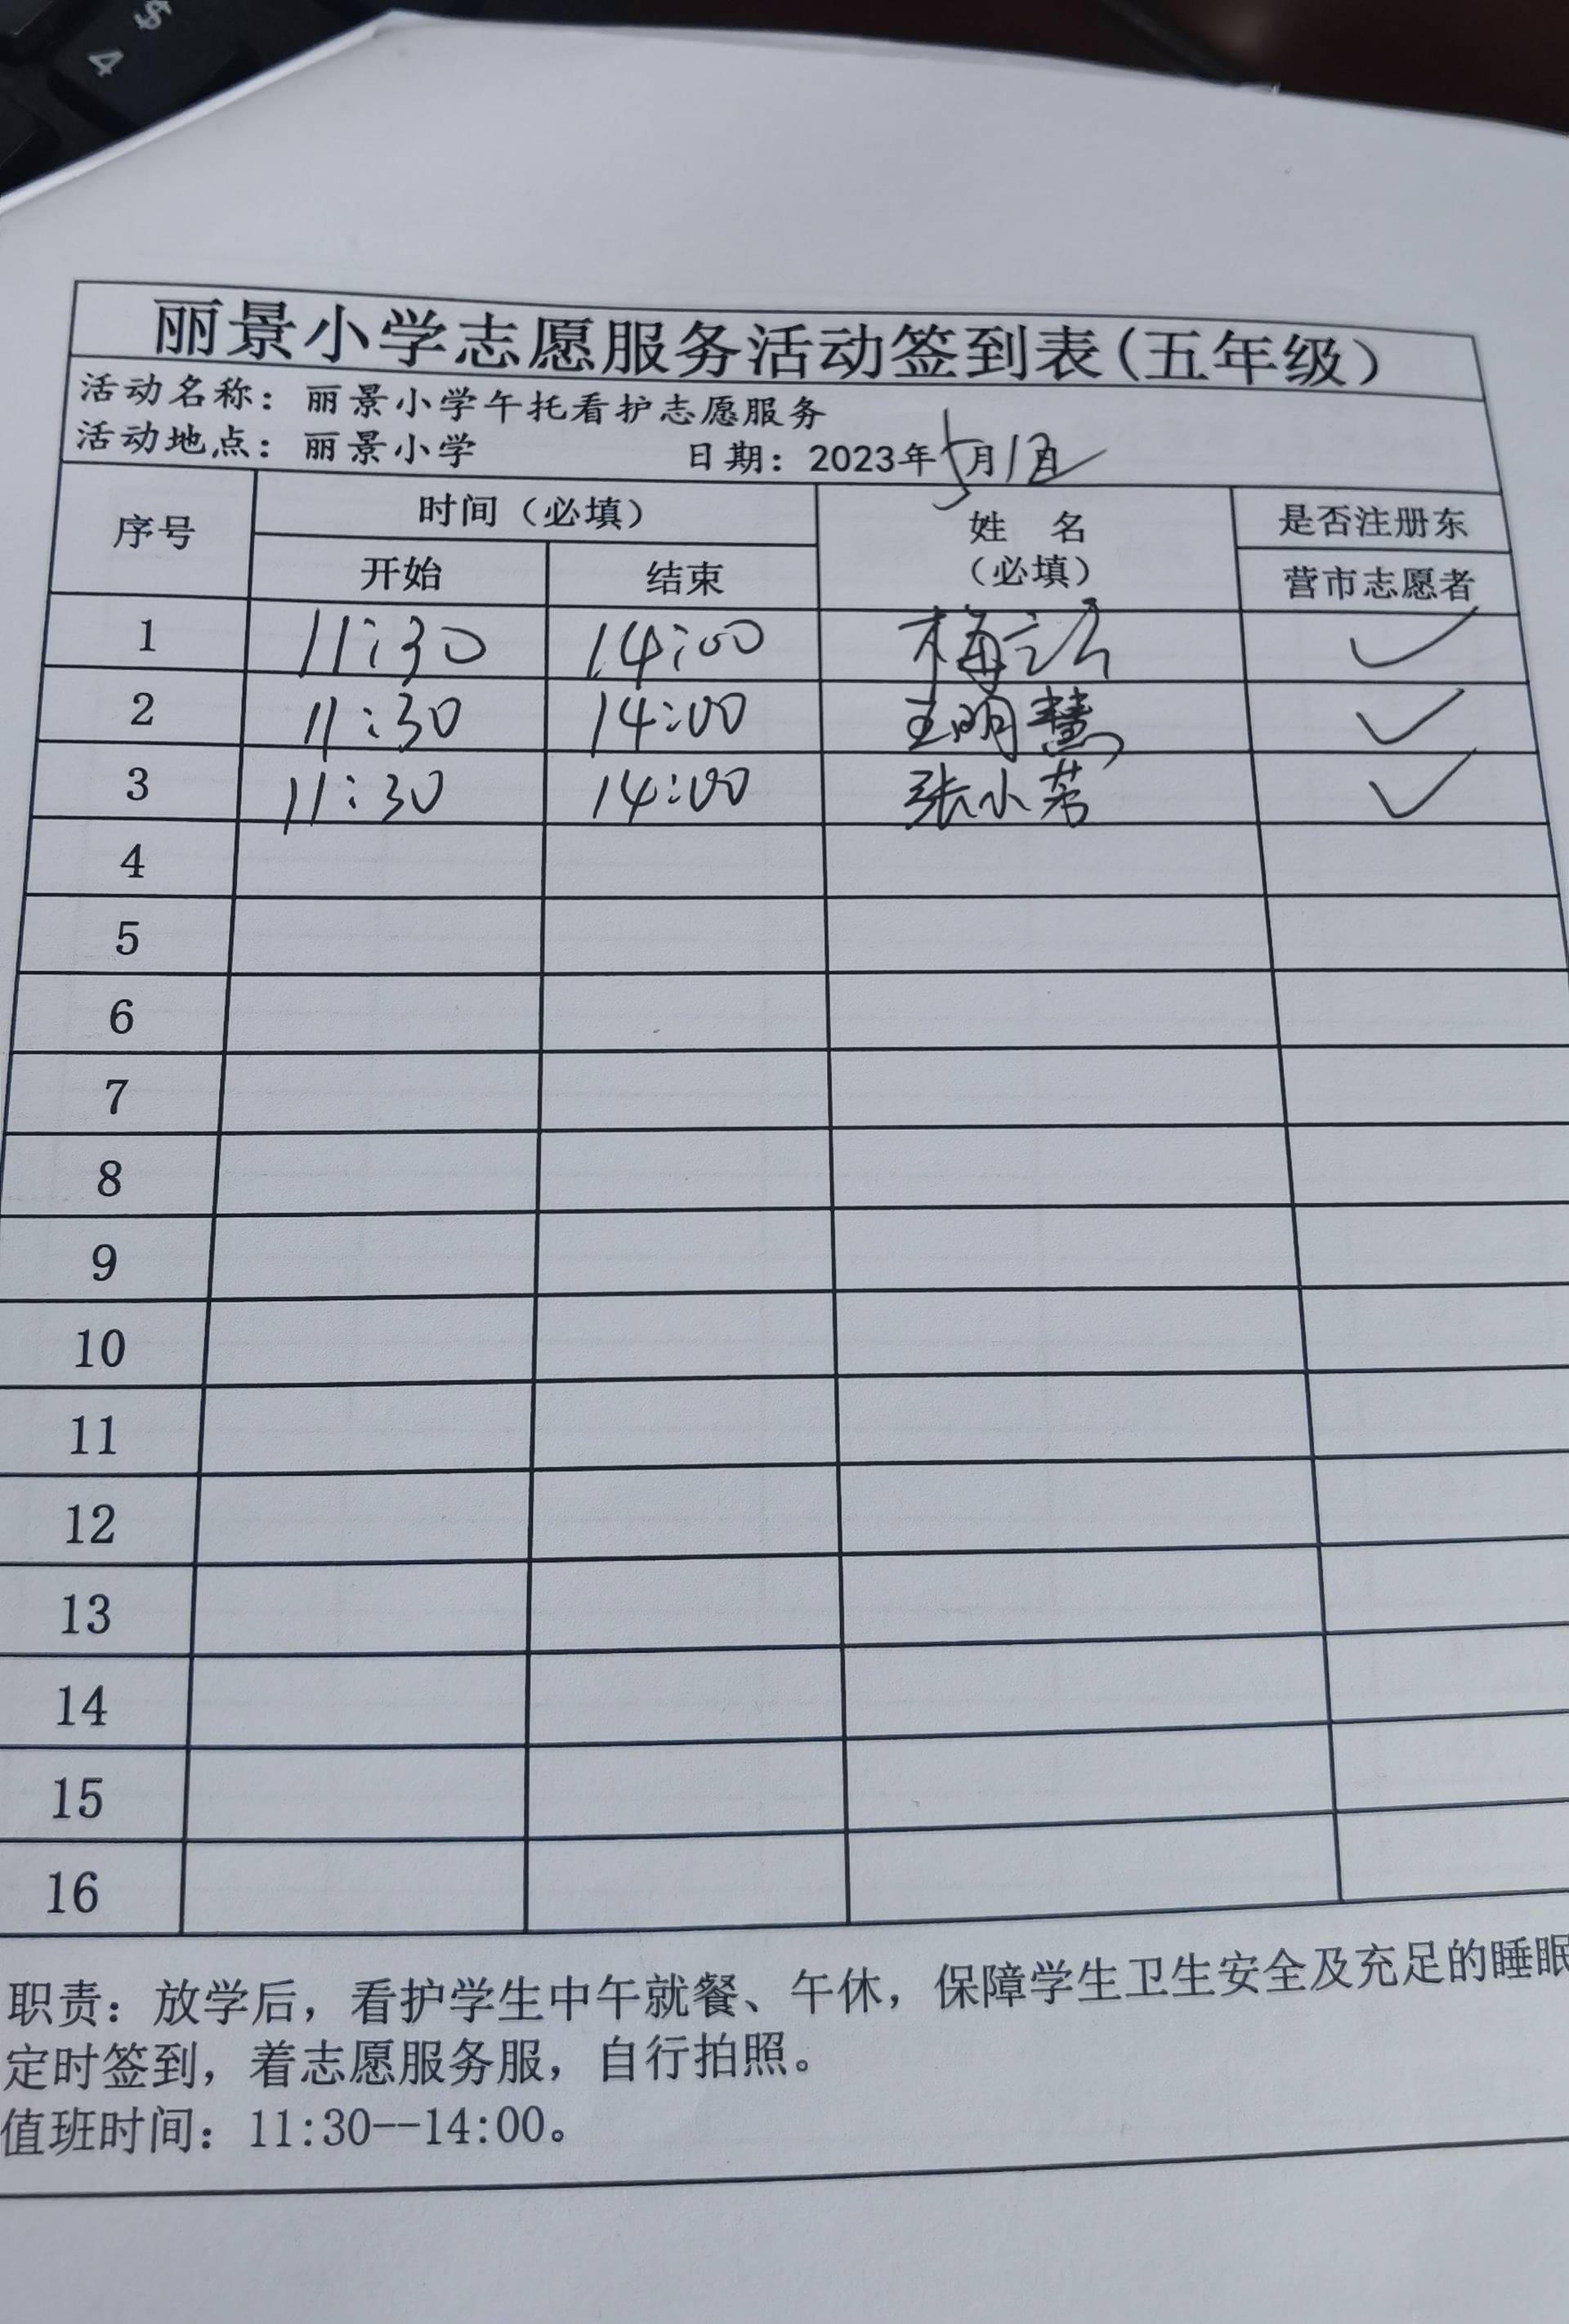 $
4
丽景小学志愿服务活动签到表(五年级)
活动名称：丽景小学午托看护志愿服务
活动地点：丽景小学 日期：2023年5月1日
序号 时间（必填） 姓名（必填） 是否注册东营市志愿者
开始 结束
1 11:30 14:00 梅 ✓
2 11:30 14:00 王明慧 ✓
3 11:30 14:00 张小 ✓
4
5
6
7
8
9
10
11
12
13
14
15
16
职责：放学后，看护学生中午就餐、午休，保障学生卫生安全及充足的睡眠
定时签到，着志愿服务服，自行拍照。
值班时间：11:30--14:00。